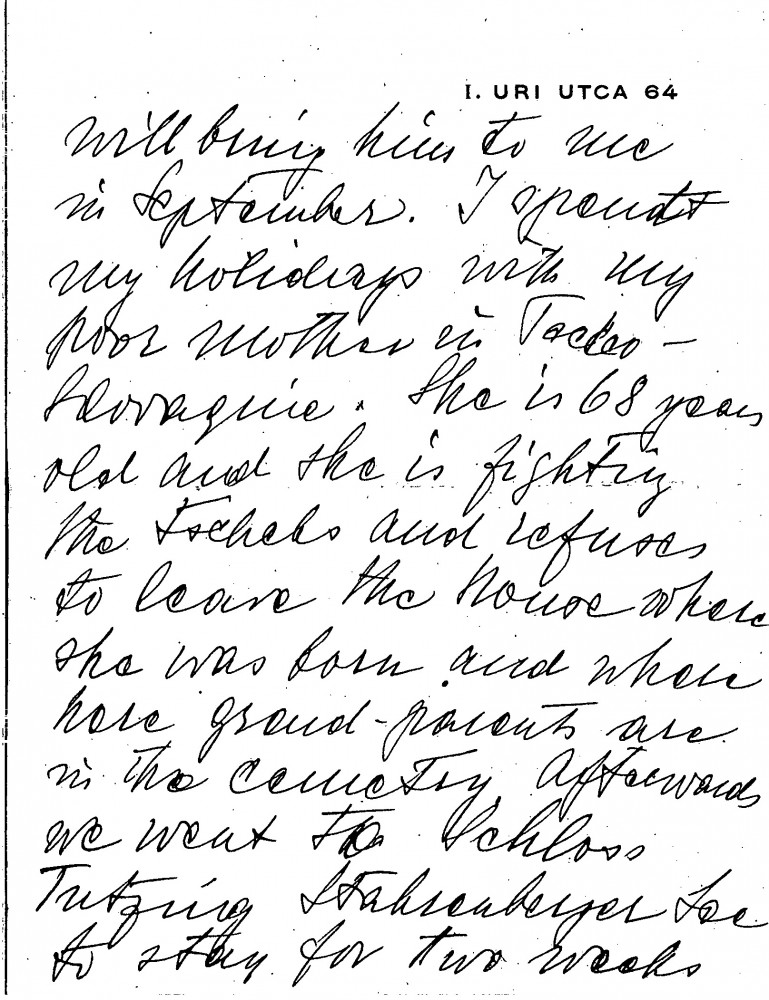 I. URI UTCA 64
will bring him to me
in September. I spendt
my holidays with my
poor mother in Tscheo-
slovaquie. She is 68 years
old and she is fighting
the Tschebs and refuses
to leave the house where
she was born and where
here grand-parents are
in the cemetry. Afterwards
we went to Schloss
Tutzing Stahrenberger See
to stay for two weeks